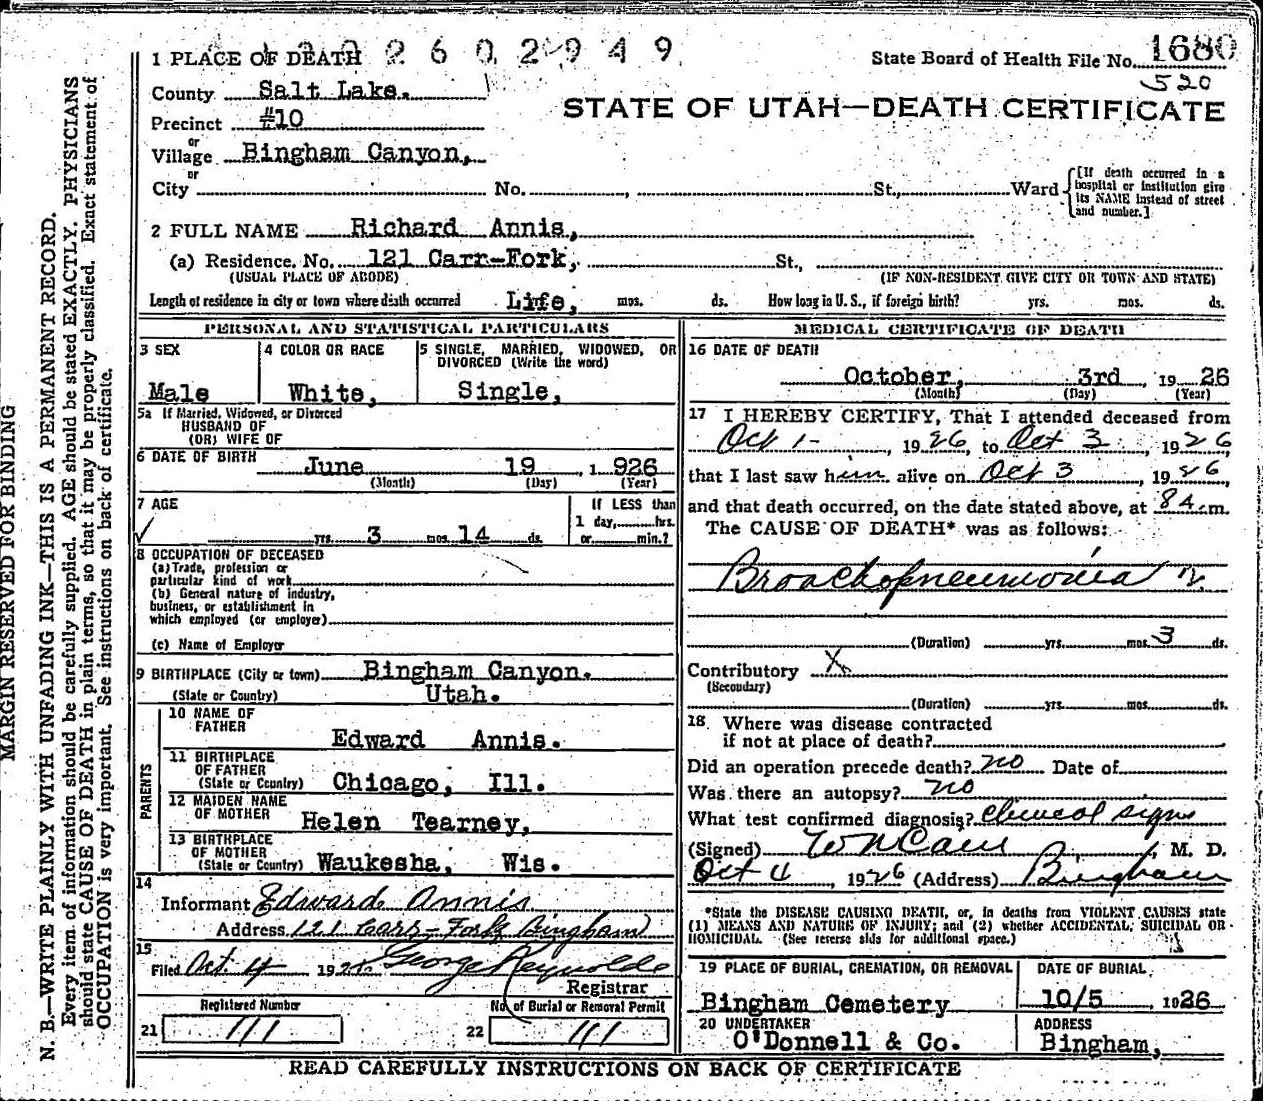 1 PLACE OF DEATH 2602949
State Board of Health File No. 1680
520
County Salt Lake.
STATE OF UTAH—DEATH CERTIFICATE
Precinct #10
or
Village Bingham Canyon,
or
City No. St., Ward
[If death occurred in a
hospital or institution give
its NAME instead of street
and number.]
2 FULL NAME Richard Annis,
(a) Residence. No. 121 Carr-Fork, St.,
(USUAL PLACE OF ABODE) (IF NON-RESIDENT GIVE CITY OR TOWN AND STATE)
Length of residence in city or town where death occurred Life, mos. ds. How long in U. S., if foreign birth? yrs. mos. ds.
PERSONAL AND STATISTICAL PARTICULARS
3 SEX
Male
4 COLOR OR RACE
White,
5 SINGLE, MARRIED, WIDOWED, OR
DIVORCED (Write the word)
Single,
5a If Married, Widowed, or Divorced
HUSBAND OF
(OR) WIFE OF
6 DATE OF BIRTH June 19, 1926
(Month) (Day) (Year)
7 AGE
yrs. 3 mos. 14 ds.
If LESS than
1 day, hrs.
or min.?
8 OCCUPATION OF DECEASED
(a) Trade, profession or
particular kind of work
(b) General nature of industry,
business, or establishment in
which employed (or employer)
(c) Name of Employer
9 BIRTHPLACE (City or town) Bingham Canyon.
(State or Country) Utah.
PARENTS
10 NAME OF
FATHER Edward Annis.
11 BIRTHPLACE
OF FATHER
(State or Country) Chicago, Ill.
12 MAIDEN NAME
OF MOTHER Helen Tearney,
13 BIRTHPLACE
OF MOTHER
(State or Country) Waukesha, Wis.
14
Informant Edward Annis
Address 121 Carr-Fork Bingham
15
Filed Oct. 4 1926 George Reynolds
Registrar
Registered Number
21 111
No. of Burial or Removal Permit
22 111
MEDICAL CERTIFICATE OF DEATH
16 DATE OF DEATH
October, 3rd, 1926
(Month) (Day) (Year)
17 I HEREBY CERTIFY, That I attended deceased from
Oct 1- 1926, to Oct 3, 1926
that I last saw him alive on Oct 3, 1926,
and that death occurred, on the date stated above, at 8 A.m.
The CAUSE OF DEATH* was as follows:
Bronchopneumonia
(Duration) yrs. mos. 3 ds.
Contributory X
(Secondary)
(Duration) yrs. mos. ds.
18. Where was disease contracted
if not at place of death?
Did an operation precede death? no Date of
Was there an autopsy? no
What test confirmed diagnosis? clinical signs
(Signed) , M. D.
Oct 4, 1926 (Address) Bingham
*State the DISEASE CAUSING DEATH, or, in deaths from VIOLENT CAUSES state
(1) MEANS AND NATURE OF INJURY; and (2) whether ACCIDENTAL, SUICIDAL OR
HOMICIDAL. (See reverse side for additional space.)
19 PLACE OF BURIAL, CREMATION, OR REMOVAL
Bingham Cemetery
DATE OF BURIAL
10/5, 1926
20 UNDERTAKER
O'Donnell & Co.
ADDRESS
Bingham,
READ CAREFULLY INSTRUCTIONS ON BACK OF CERTIFICATE
MARGIN RESERVED FOR BINDING
N. B.—WRITE PLAINLY WITH UNFADING INK—THIS IS A PERMANENT RECORD.
Every item of information should be carefully supplied. AGE should be stated EXACTLY. PHYSICIANS
should state CAUSE OF DEATH in plain terms, so that it may be properly classified. Exact statement of
OCCUPATION is very important. See instructions on back of certificate.